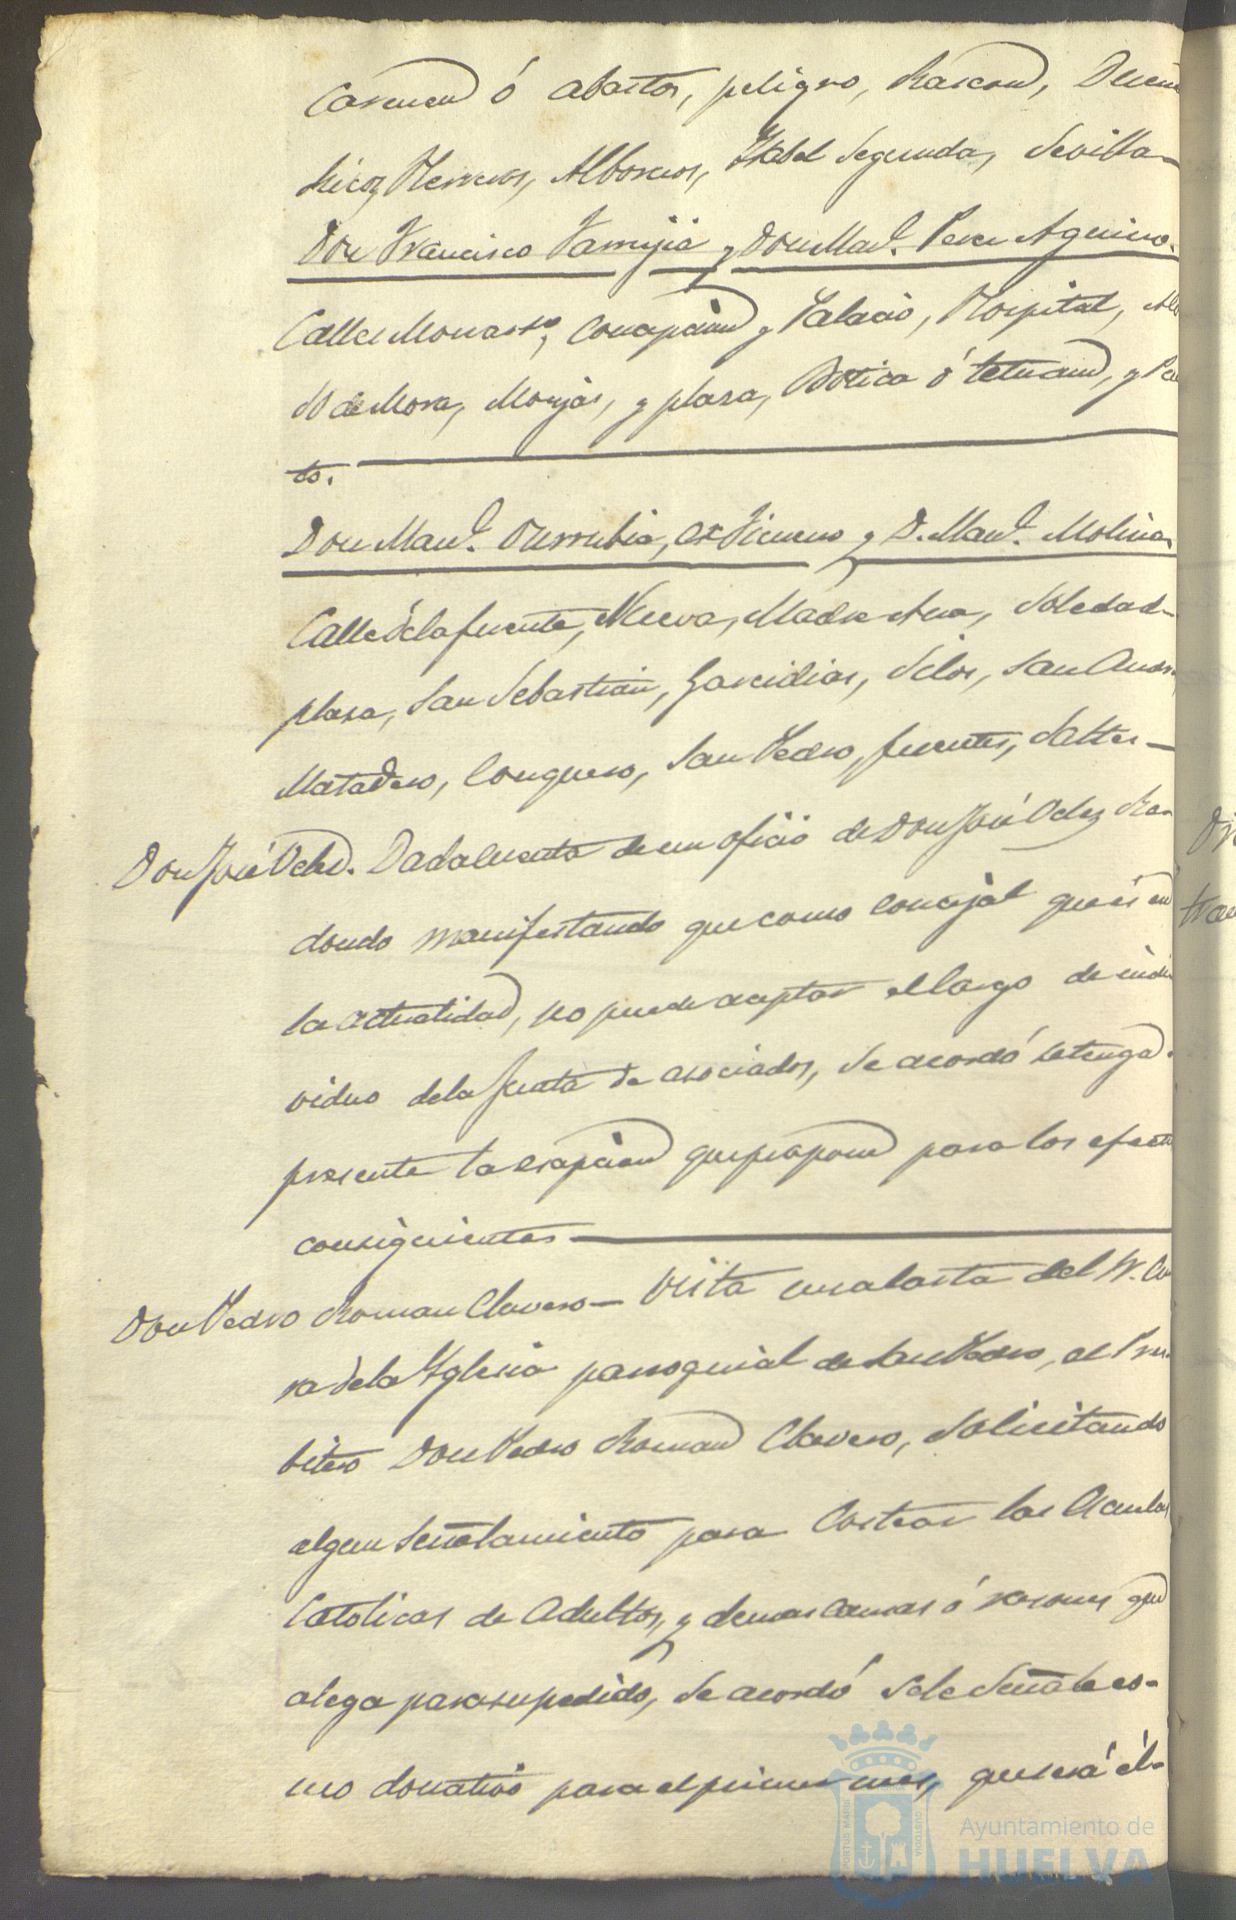 Carmen ó abastos, peligro, Rascon, Duem
Rico, Herreros, Albornos, Ysabel Segunda, Sevilla—
Don Francisco Garrujia y Don Man.l Perez Aguirre.
Calles Monasterio, Concepcion y Palacio, Hospital, Alo
de Mora, Monjas, y plaza, Botica ó tetuan, y Pu
to.
Don Man.l Ourrubia, y D. Man.l Molina
Calle de la fuente, Nueva, Madre Ana, Soledad—
plaza, San Sebastian, Garcidias, Silos, San Andrs
Matadero, Conquero, San Pedro, fuentes, Saltes—
Don José Odez. Dada cuenta de un oficio de Don José Odez Re-
dondo manifestando que como concejal que es en
la actualidad, no puede aceptar el cargo de indi
viduo de la Junta de asociados, se acordó se tenga
presente la escepcion que propone para los efectos
consiguientes—
Don Pedro Roman Clavero— Vista una carta del Sr. Cu
ra de la Yglesia parroquial de San Pedro, el Pres-
bitero Don Pedro Roman Clavero, Solicitando
algun Señalamiento para Costear las Escuelas
Catolicas de Adultos, y demas causas ó razones que
alega para su pedido, Se acordó Se le Señale co-
mo donativo para el primer mes, que será él-
Dn
tran
PORTUS MARIS
CUSTODIA
Ayuntamiento de
HUELVA